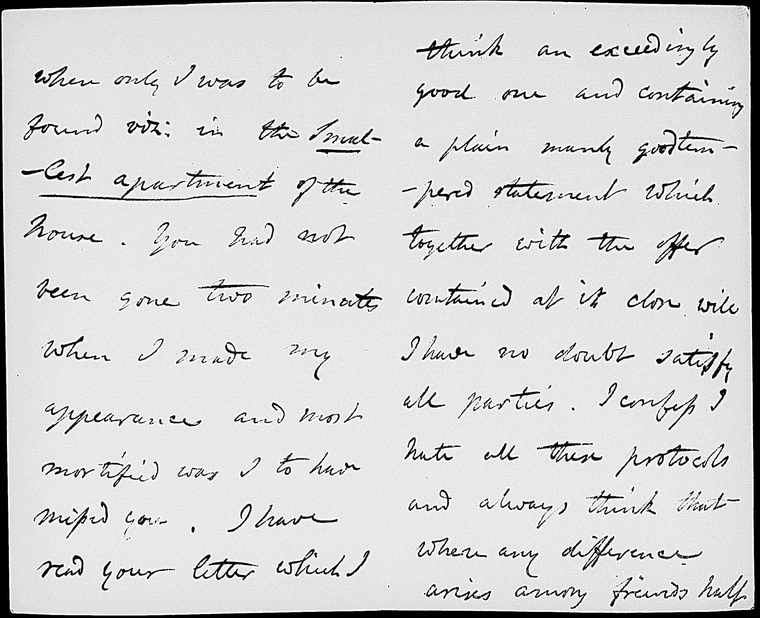 when only I was to be
found viz: in the Smal-
-lest apartment of the
house. You had not
been gone two minutes
when I made my
appearance and most
mortified was I to have
missed you. I have
read your letter which I
think an exceedingly
good one and containing
a plain manly goodtem-
-pered statement which
together with the offer
contained at its close will
I have no doubt satisfy
all parties. I confess I
hate all these protocols
and always think that
where any difference
arises among friends half